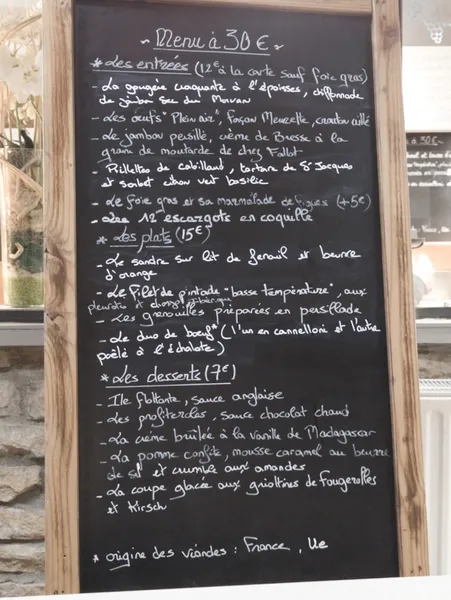 ~ Menu à 30€ ~
* Les entrées (12€ à la carte sauf foie gras)
- La gougère craquante à l'époisses, chiffonnade
de jambon sec du Morvan
- Les œufs "Plein air", façon Meurette, crouton aillé
- Le jambon persillé, crème de Bresse à la
graine de moutarde de chez Fallot
- Rillettes de cabillaud, tartare de St Jacques
et sorbet citron vert basilic
- Le foie gras et sa marmelade de figues (+5€)
- Les 12 escargots en coquille
* Les plats (15€)
- Le sandre sur lit de fenouil et beurre
d'orange
- Le filet de pintade "basse température", aux
pleurotes et chorizo ibérique
- Les grenouilles préparées en persillade
- Le duo de bœuf* (l'un en cannelloni et l'autre
poêlé à l'échalote)
* Les desserts (7€)
- Ile flottante, sauce anglaise
- Les profiteroles, sauce chocolat chaud
- La crème brûlée à la vanille de Madagascar
- La pomme confite, mousse caramel au beurre
de sel et crumble aux amandes
- La coupe glacée aux griottines de Fougerolles
et Kirsch
* origine des viandes : France, Ue